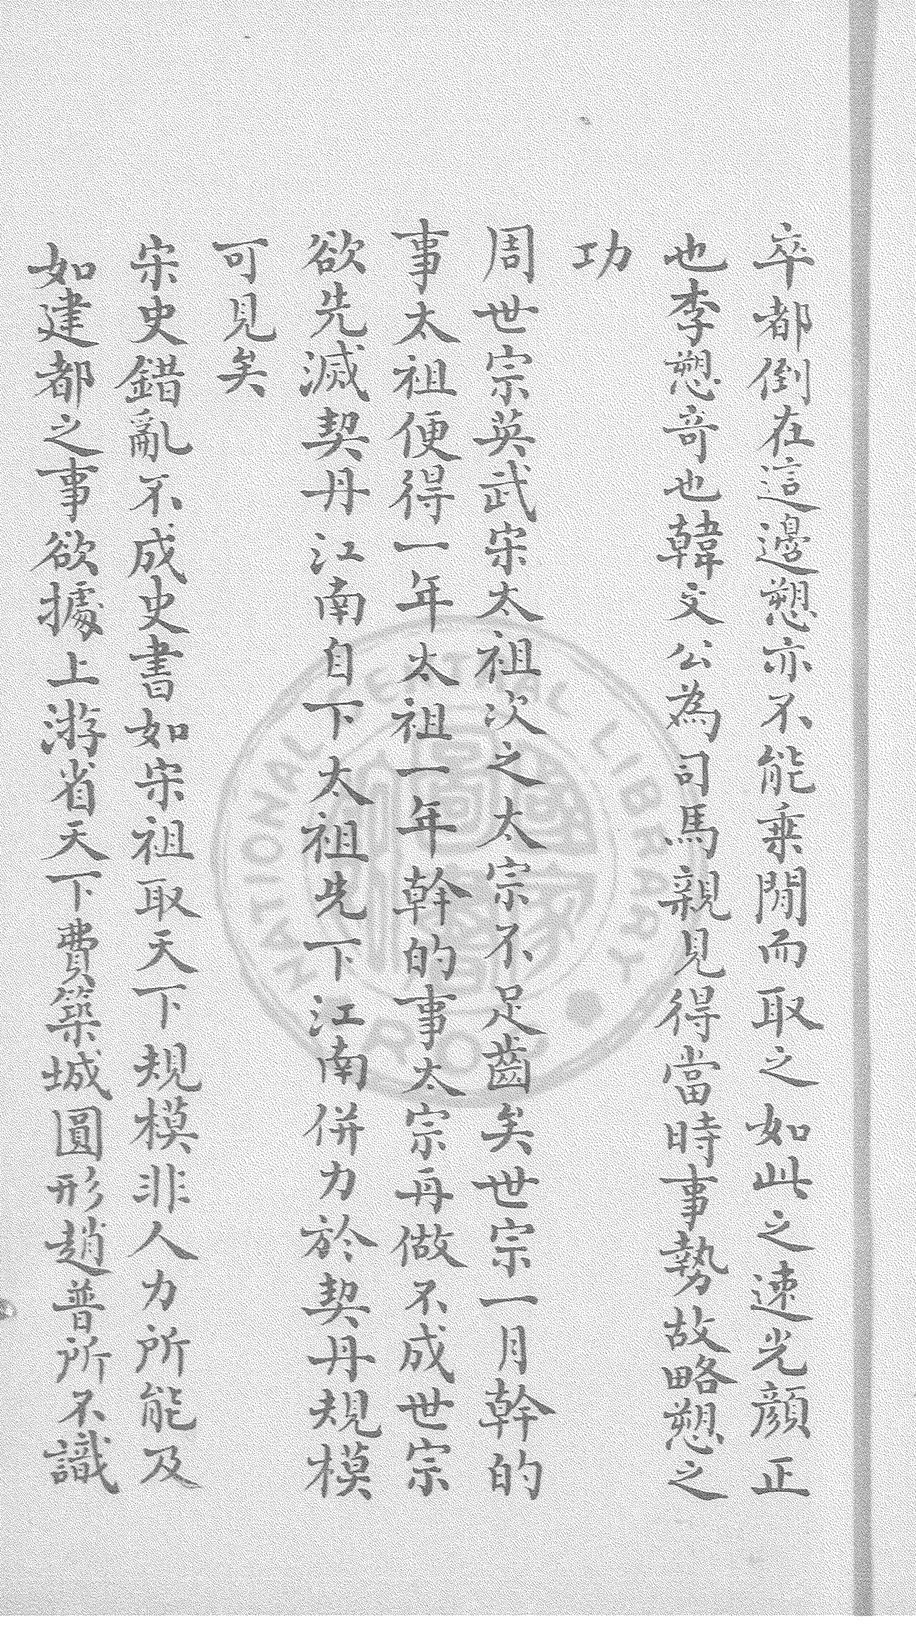 卒都倒在這邊愬亦不能乗閒而取之如此之速光顔正
也李愬竒也韓文公為司馬親見得當時事勢故略愬之
功
周世宗英武宋太祖次之太宗不足齒矣世宗一月幹的
事太祖便得一年太祖一年幹的事太宗再做不成世宗
欲先滅契丹江南自下太祖先下江南併力於契丹規模
可見矣
宋史錯亂不成史書如宋祖取天下規模非人力所能及
如建都之事欲據上游省天下費築城圓形趙普所不識
NATIONAL CENTRAL LIBRARY
ROC